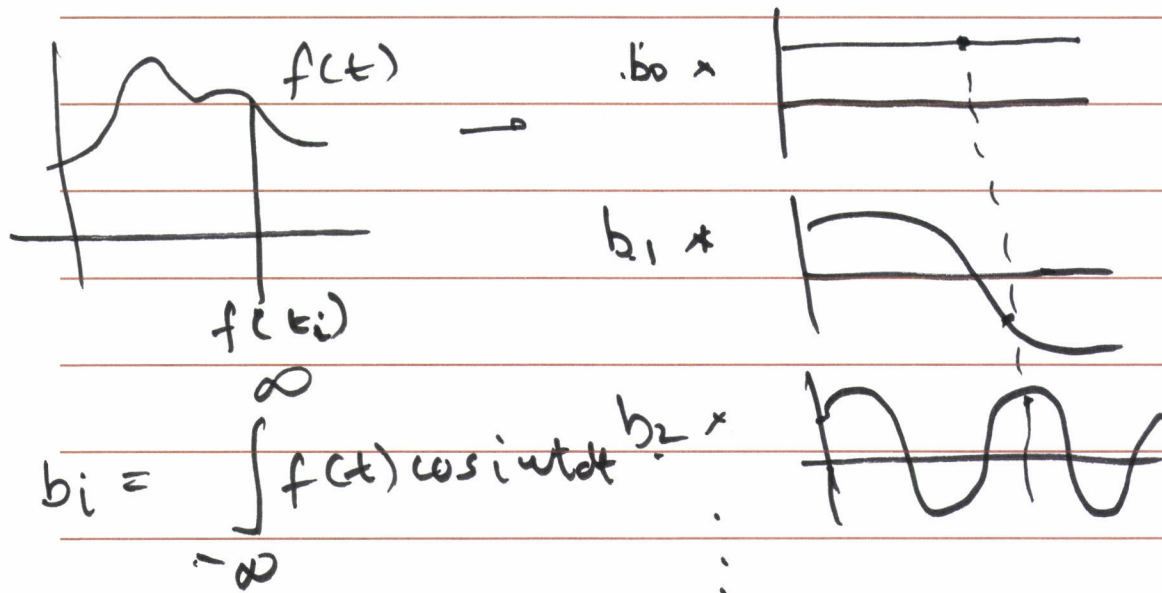 f(t)
→
b₀ *
b₁ *
f(tᵢ)
bᵢ = ∫_{-∞}^{∞} f(t) cos i wt dt
b₂ *
⋮